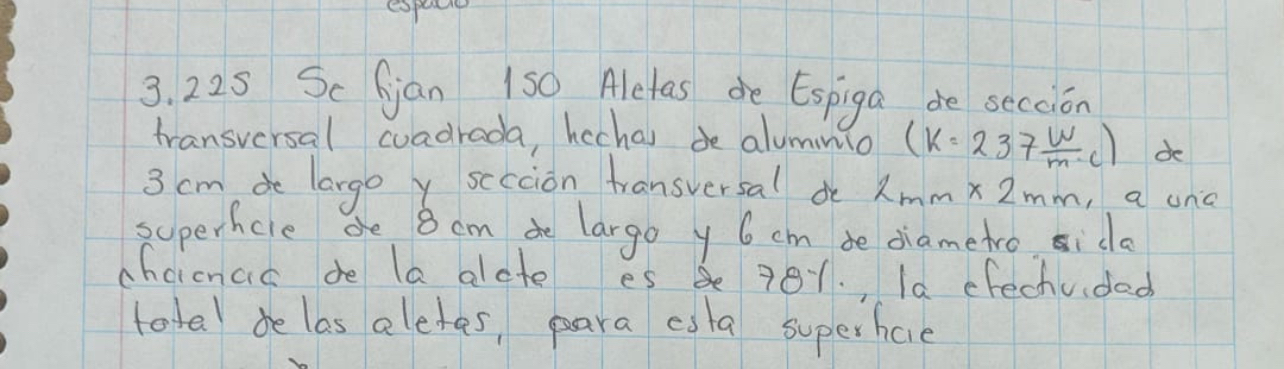 3.225 Se fijan 150 Aletas de Espiga de sección
transversal cuadrada, hechas de aluminio (K = 237 W/m·c) de
3 cm de largo y sección transversal de 2mm x 2mm, a una
superficie de 8 cm de largo y 6 cm de diametro si la
eficiencia de la aleta es de 78%., la efectividad
total de las aletas, para esta superficie